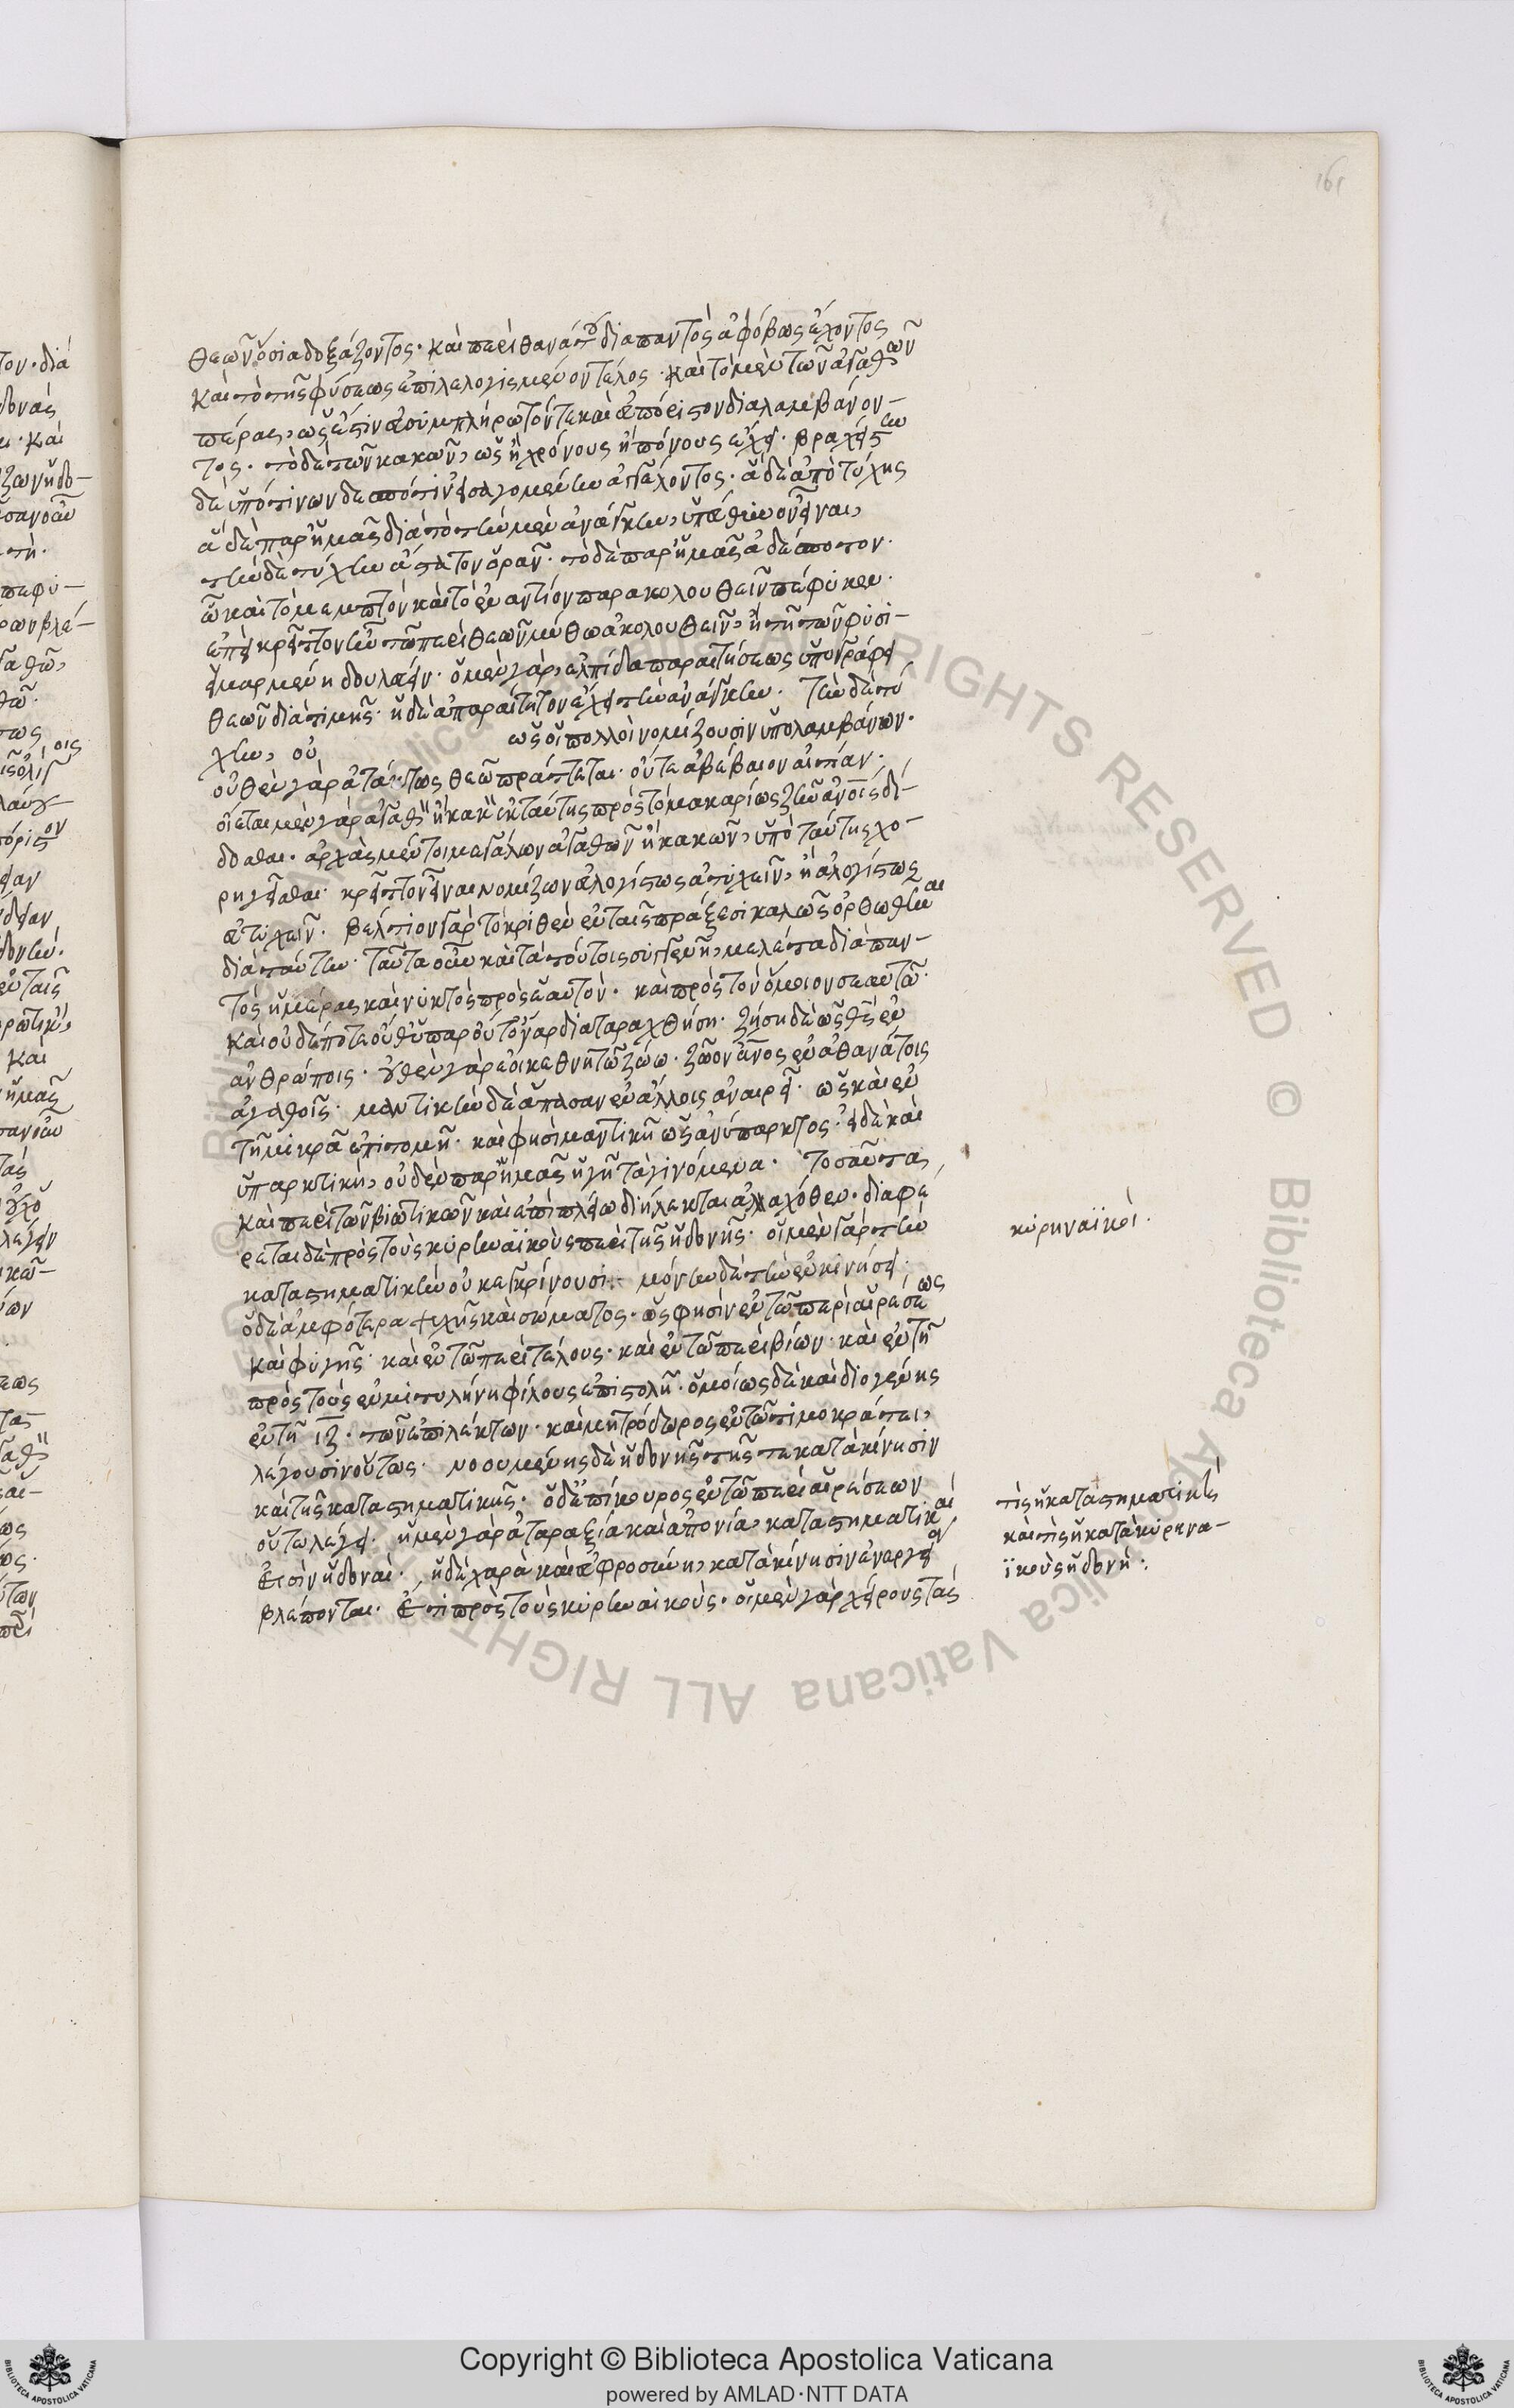 161
θεῶν ὅσια δοξάζοντος· καὶ περὶ θανάτου διαπαντὸς ἀφόβως ἔχοντος
καὶ τὸ τῆς φύσεως ἐπιλελογισμένου τέλος· καὶ τὸ μὲν τῶν ἀγαθῶν
πέρας, ὡς ἔστιν εὐσυμπλήρωτόν τε καὶ εὐπόριστον διαλαμβάνον-
τος· τὸ δὲ τῶν κακῶν, ὡς ἢ χρόνους ἢ πόνους ἔχει βραχεῖς· τὴν
δὲ ὑπό τινων δεσπότιν εἰσαγομένην ἀγγέλοντος· ἃ δὲ ἀπὸ τύχης
ἃ δὲ παρ' ἡμᾶς διὰ τὸ τὴν μὲν ἀνάγκην, ὑπεύθυνον εἶναι,
τὴν δὲ τύχην ἄστατον ὁρᾶν· τὸ δὲ παρ' ἡμᾶς ἀδέσποτον·
ᾧ καὶ τὸ μεμπτὸν καὶ τὸ ἐναντίον παρακολουθεῖν πέφυκεν·
ἐπεὶ κρεῖττον ἦν τῷ περὶ θεῶν μύθῳ ἀκολουθεῖν, ἢ τῇ τῶν φυσι-
εἱμαρμένῃ δουλεύειν· ὁ μὲν γὰρ, ἐλπίδα παραιτήσεως ὑπογράφει
θεῶν διὰ τιμῆς· ἡ δὲ ἀπαραίτητον ἔχει τὴν ἀνάγκην· Τὴν δὲ τύ
χην, οὐ ὡς οἱ πολλοὶ νομίζουσιν ὑπολαμβάνων·
οὐθὲν γὰρ ἀτάκτως θεῷ πράττεται· οὔτε ἀβέβαιον αἰτίαν·
οἴεται μὲν γὰρ ἀγαθὸν ἢ κακὸν ἐκ ταύτης πρὸς τὸ μακαρίως ζῆν ἀνοις δί-
δοσθαι· ἀρχὰς μέντοι μεγάλων ἀγαθῶν ἢ κακῶν, ὑπὸ ταύτης χο-
ρηγεῖσθαι· κρεῖττον εἶναι νομίζων εὐλογίστως ἀτυχεῖν, ἢ ἀλογίστως
εὐτυχεῖν· βέλτιον γὰρ τὸ κριθὲν ἐν ταῖς πράξεσι καλῶς ὀρθωθῆναι
διὰ ταύτην· Ταῦτα οὖν καὶ τὰ τούτοις συγγενῆ, μελέτα διὰ παν-
τὸς ἡμέρας καὶ νυκτὸς πρὸς ἑαυτὸν· καὶ πρὸς τὸν ὅμοιον σεαυτῷ·
καὶ οὐδέποτε οὔθ' ὕπαρ οὔτ' ὄναρ διαταραχθήσῃ· ζήσῃ δὲ ὡς θς ἐν
ἀνθρώποις· οὐθὲν γὰρ ἔοικε θνητῷ ζώῳ· ζῶον ἄνος ἐν ἀθανάτοις
ἀγαθοῖς· μαντικὴν δὲ ἅπασαν ἐν ἄλλοις ἀναιρεῖ· ὡς καὶ ἐν
τῇ μικρᾷ ἐπιτομῇ· καὶ φησὶ μαντικὴ ὡς ἀνύπαρκτος· εἰ δὲ καὶ
ὑπαρκτικὴ, οὐδὲν παρ' ἡμᾶς ἡγῆ τὰ γινόμενα· Τοσαῦτα
καὶ περὶ τῶν βιωτικῶν καὶ ἐπὶ πλείω διείλεκται ἀλλαχόθεν· διαφέ
ρεται δὲ πρὸς τοὺς κυρηναϊκοὺς περὶ τῆς ἡδονῆς· οἱ μὲν γὰρ τὴν
καταστηματικὴν οὐκ ἐγκρίνουσι· μόνην δὲ τὴν ἐν κινήσει·
ὁ δὲ ἀμφότερα ψυχῆς καὶ σώματος· ὥς φησὶν ἐν τῷ περὶ αἱρέσεως
καὶ φυγῆς· καὶ ἐν τῷ περὶ τέλους· καὶ ἐν τῷ περὶ βίων· καὶ ἐν τῇ
πρὸς τοὺς ἐν μιτυλήνῃ φίλους ἐπιστολῇ· ὁμοίως δὲ καὶ διογένης
ἐν τῇ ιζ· τῶν ἐπιλέκτων· καὶ μητρόδωρος ἐν τῷ τιμοκράτει,
λέγουσιν οὕτως· νοουμένης δὲ ἡδονῆς τῆς τε κατὰ κίνησιν
καὶ τῆς καταστηματικῆς· ὁ δ' ἐπίκουρος ἐν τῷ περὶ αἱρέσεων
οὕτω λέγει· ἡ μὲν γὰρ ἀταραξία καὶ ἀπονία, καταστηματικαί
εἰσιν ἡδοναί· ἡ δὲ χαρὰ καὶ εὐφροσύνη, κατὰ κίνησιν ἐνεργείᾳ
βλέπονται· Ἔτι πρὸς τοὺς κυρηναικούς· οἱ μὲν γὰρ χείρους τὰς
κυρηναϊκοὶ·
τίς ἡ καταστηματικὴ
καὶ τίς ἡ κατὰ κυρηνα-
ϊκοὺς ἡδονὴ:
Copyright © Biblioteca Apostolica Vaticana
powered by AMLAD·NTT DATA